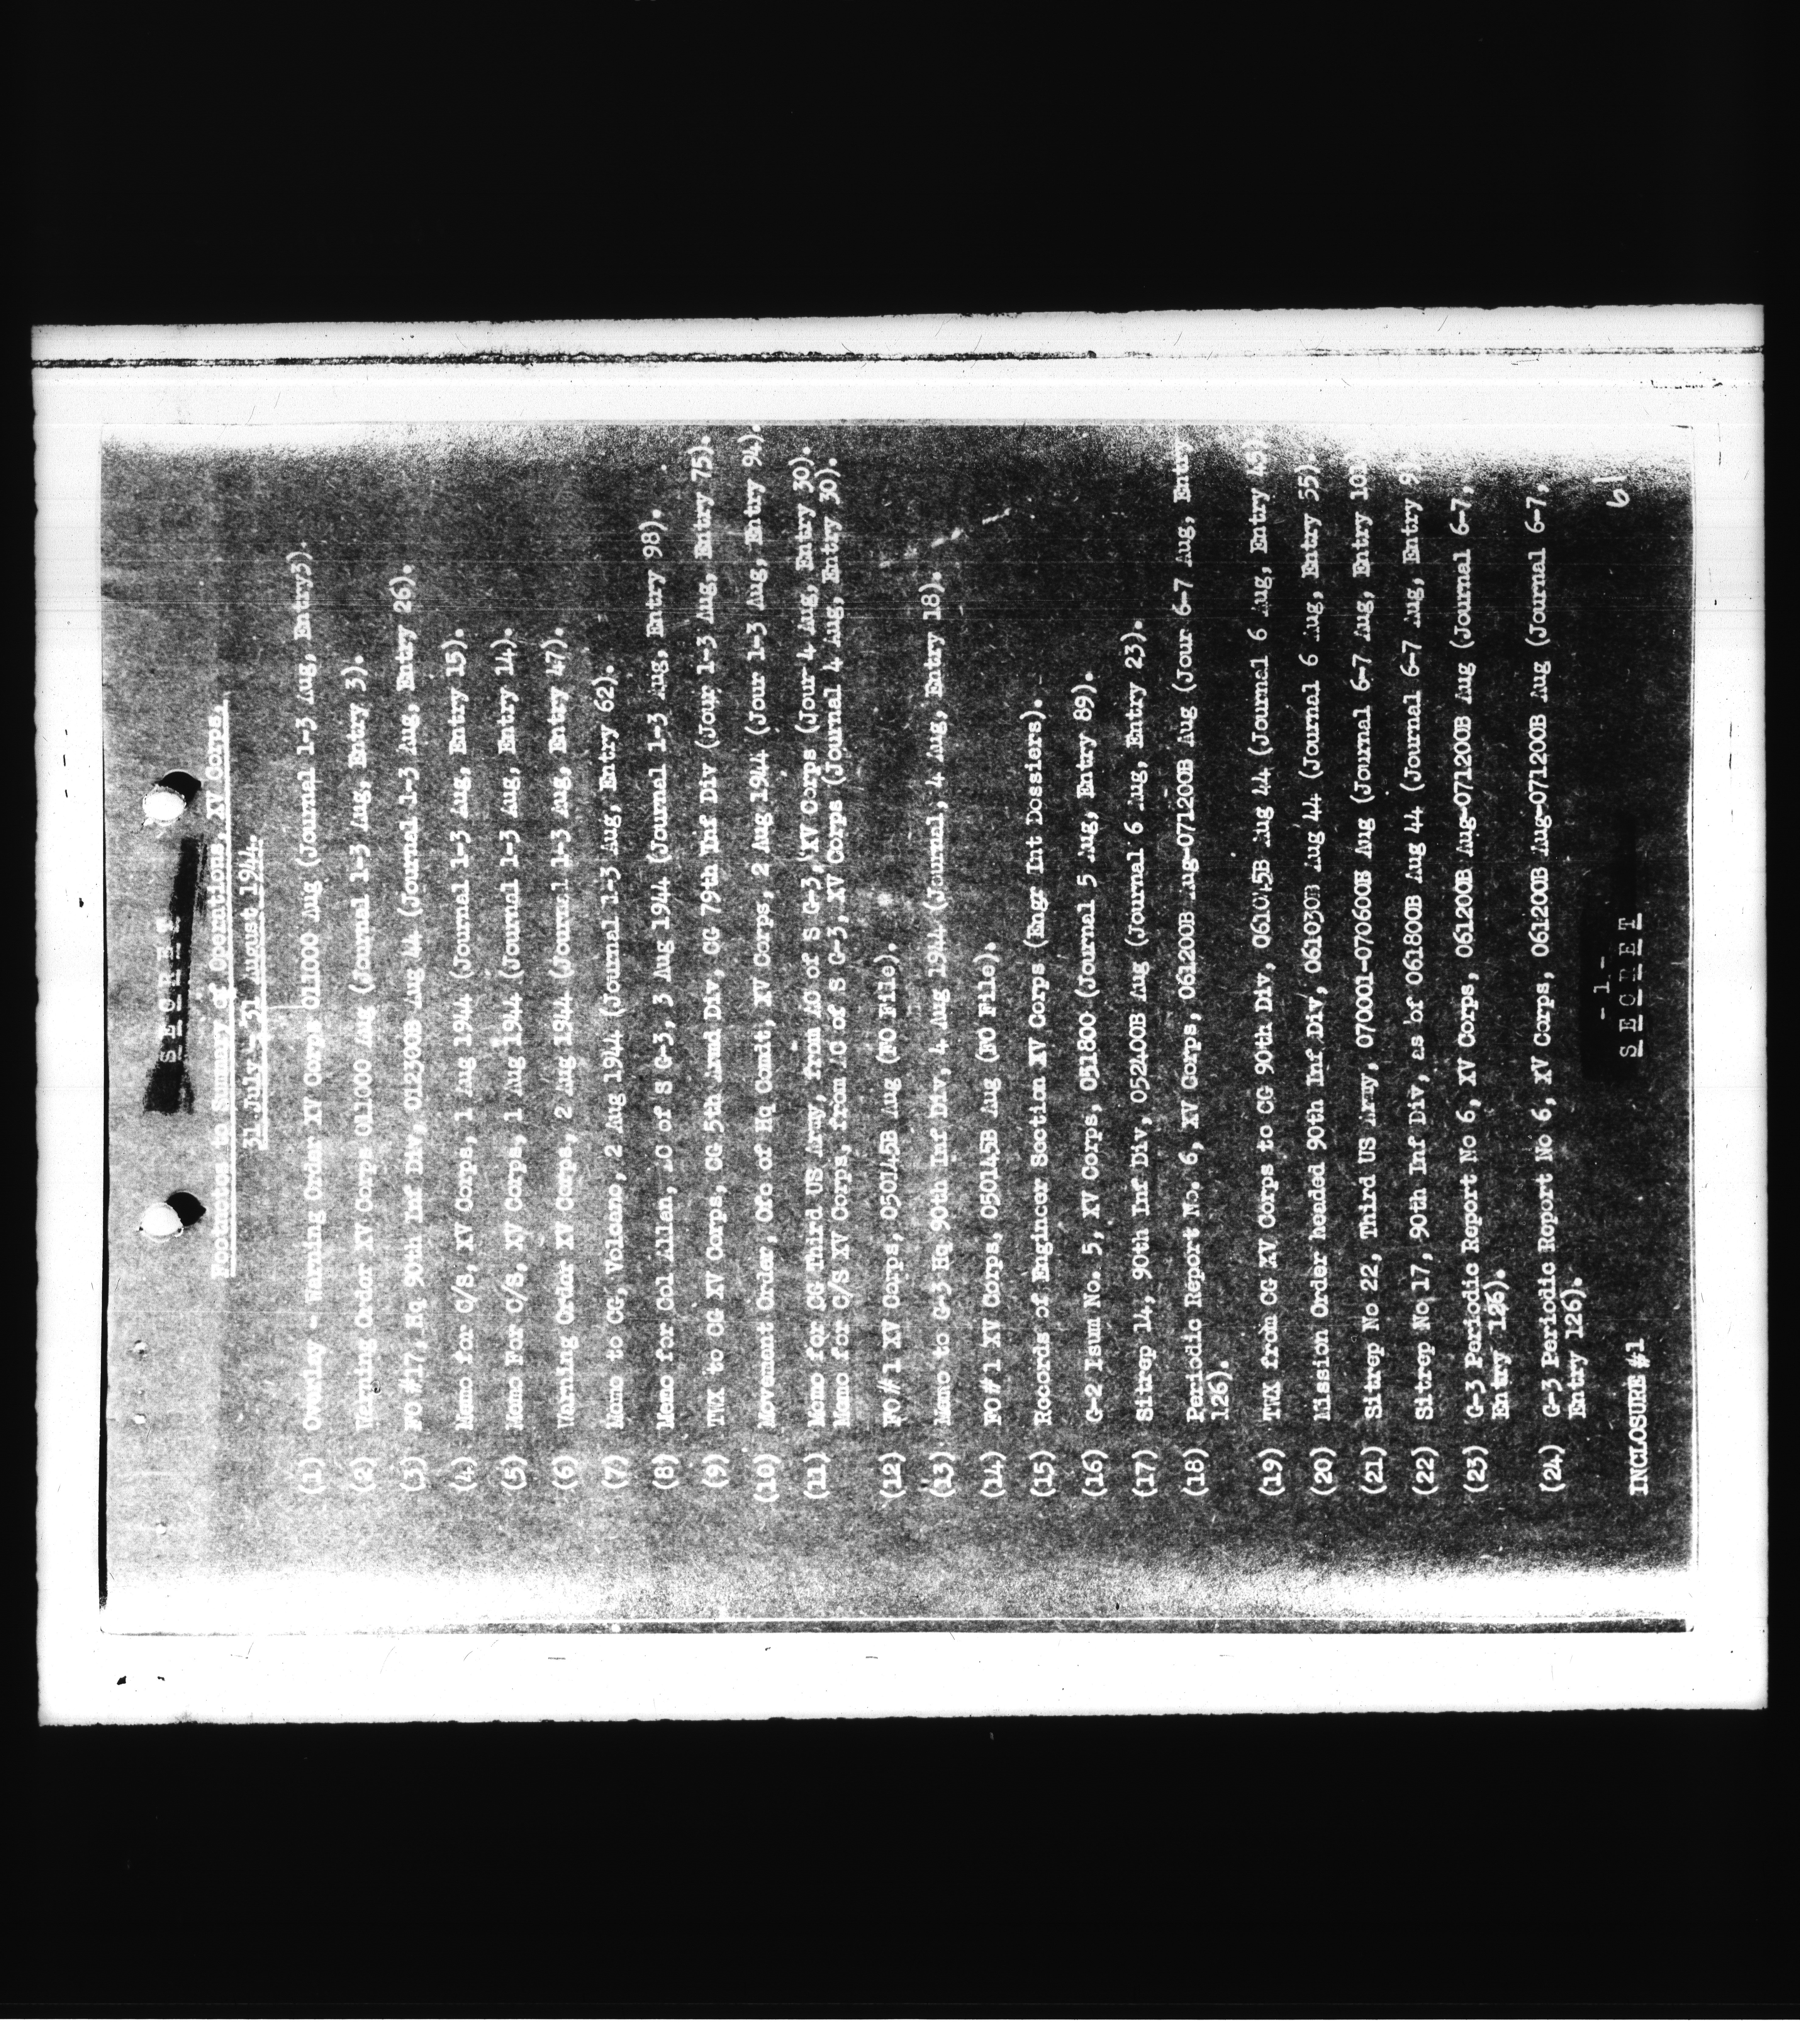 S E C R E T
Footnotes to Summary of Operations, XV Corps,
31 July - 31 August 1944.
(1) Overlay - Warning Order XV Corps 011000 Aug (Journal 1-3 Aug, Entry3).
(2) Warning Order XV Corps 011000 Aug (Journal 1-3 Aug, Entry 3).
(3) FO #17, Hq 90th Inf Div, 012300B Aug 44 (Journal 1-3 Aug, Entry 26).
(4) Memo for C/S, XV Corps, 1 Aug 1944 (Journal 1-3 Aug, Entry 15).
(5) Memo For C/S, XV Corps, 1 Aug 1944 (Journal 1-3 Aug, Entry 14).
(6) Warning Order XV Corps, 2 Aug 1944 (Journal 1-3 Aug, Entry 47).
(7) Memo to CG, Volcano, 2 Aug 1944 (Journal 1-3 Aug, Entry 62).
(8) Memo for Col Allan, AC of S G-3, 3 Aug 1944 (Journal 1-3 Aug, Entry 98).
(9) TWX to CG XV Corps, CG 5th Armd Div, CG 79th Inf Div (Jour 1-3 Aug, Entry 75).
(10) Movement Order, Ofc of Hq Comdt, XV Corps, 2 Aug 1944 (Jour 1-3 Aug, Entry 94).
(11) Memo for CG Third US Army, from AC of S G-3, XV Corps (Jour 4 Aug, Entry 30).
Memo for C/S XV Corps, from AC of S G-3, XV Corps (Journal 4 Aug, Entry 30).
(12) FO#1 XV Corps, 050145B Aug (FO File).
(13) Memo to G-3 Hq 90th Inf Div, 4 Aug 1944 (Journal, 4 Aug, Entry 18).
(14) FO#1 XV Corps, 050145B Aug (FO File).
(15) Records of Engineer Section XV Corps (Engr Int Dossiers).
(16) G-2 Isum No. 5, XV Corps, 051800 (Journal 5 Aug, Entry 89).
(17) Sitrep 14, 90th Inf Div, 052400B Aug (Journal 6 Aug, Entry 23).
(18) Periodic Report No. 6, XV Corps, 061200B Aug-071200B Aug (Jour 6-7 Aug, Entry
126).
(19) TWX from CG XV Corps to CG 90th Div, 061045B Aug 44 (Journal 6 Aug, Entry 45).
(20) Mission Order headed 90th Inf Div, 061030B Aug 44 (Journal 6 Aug, Entry 55).
(21) Sitrep No 22, Third US Army, 070001-070600B Aug (Journal 6-7 Aug, Entry
(22) Sitrep No 17, 90th Inf Div, as of 061800B Aug 44 (Journal 6-7 Aug, Entry
(23) G-3 Periodic Report No 6, XV Corps, 061200B Aug-071200B Aug (Journal 6-7,
Entry 126).
(24) G-3 Periodic Report No 6, XV Corps, 061200B Aug-071200B Aug (Journal 6-7,
Entry 126).
- 1 -
INCLOSURE #1 S E C R E T 61